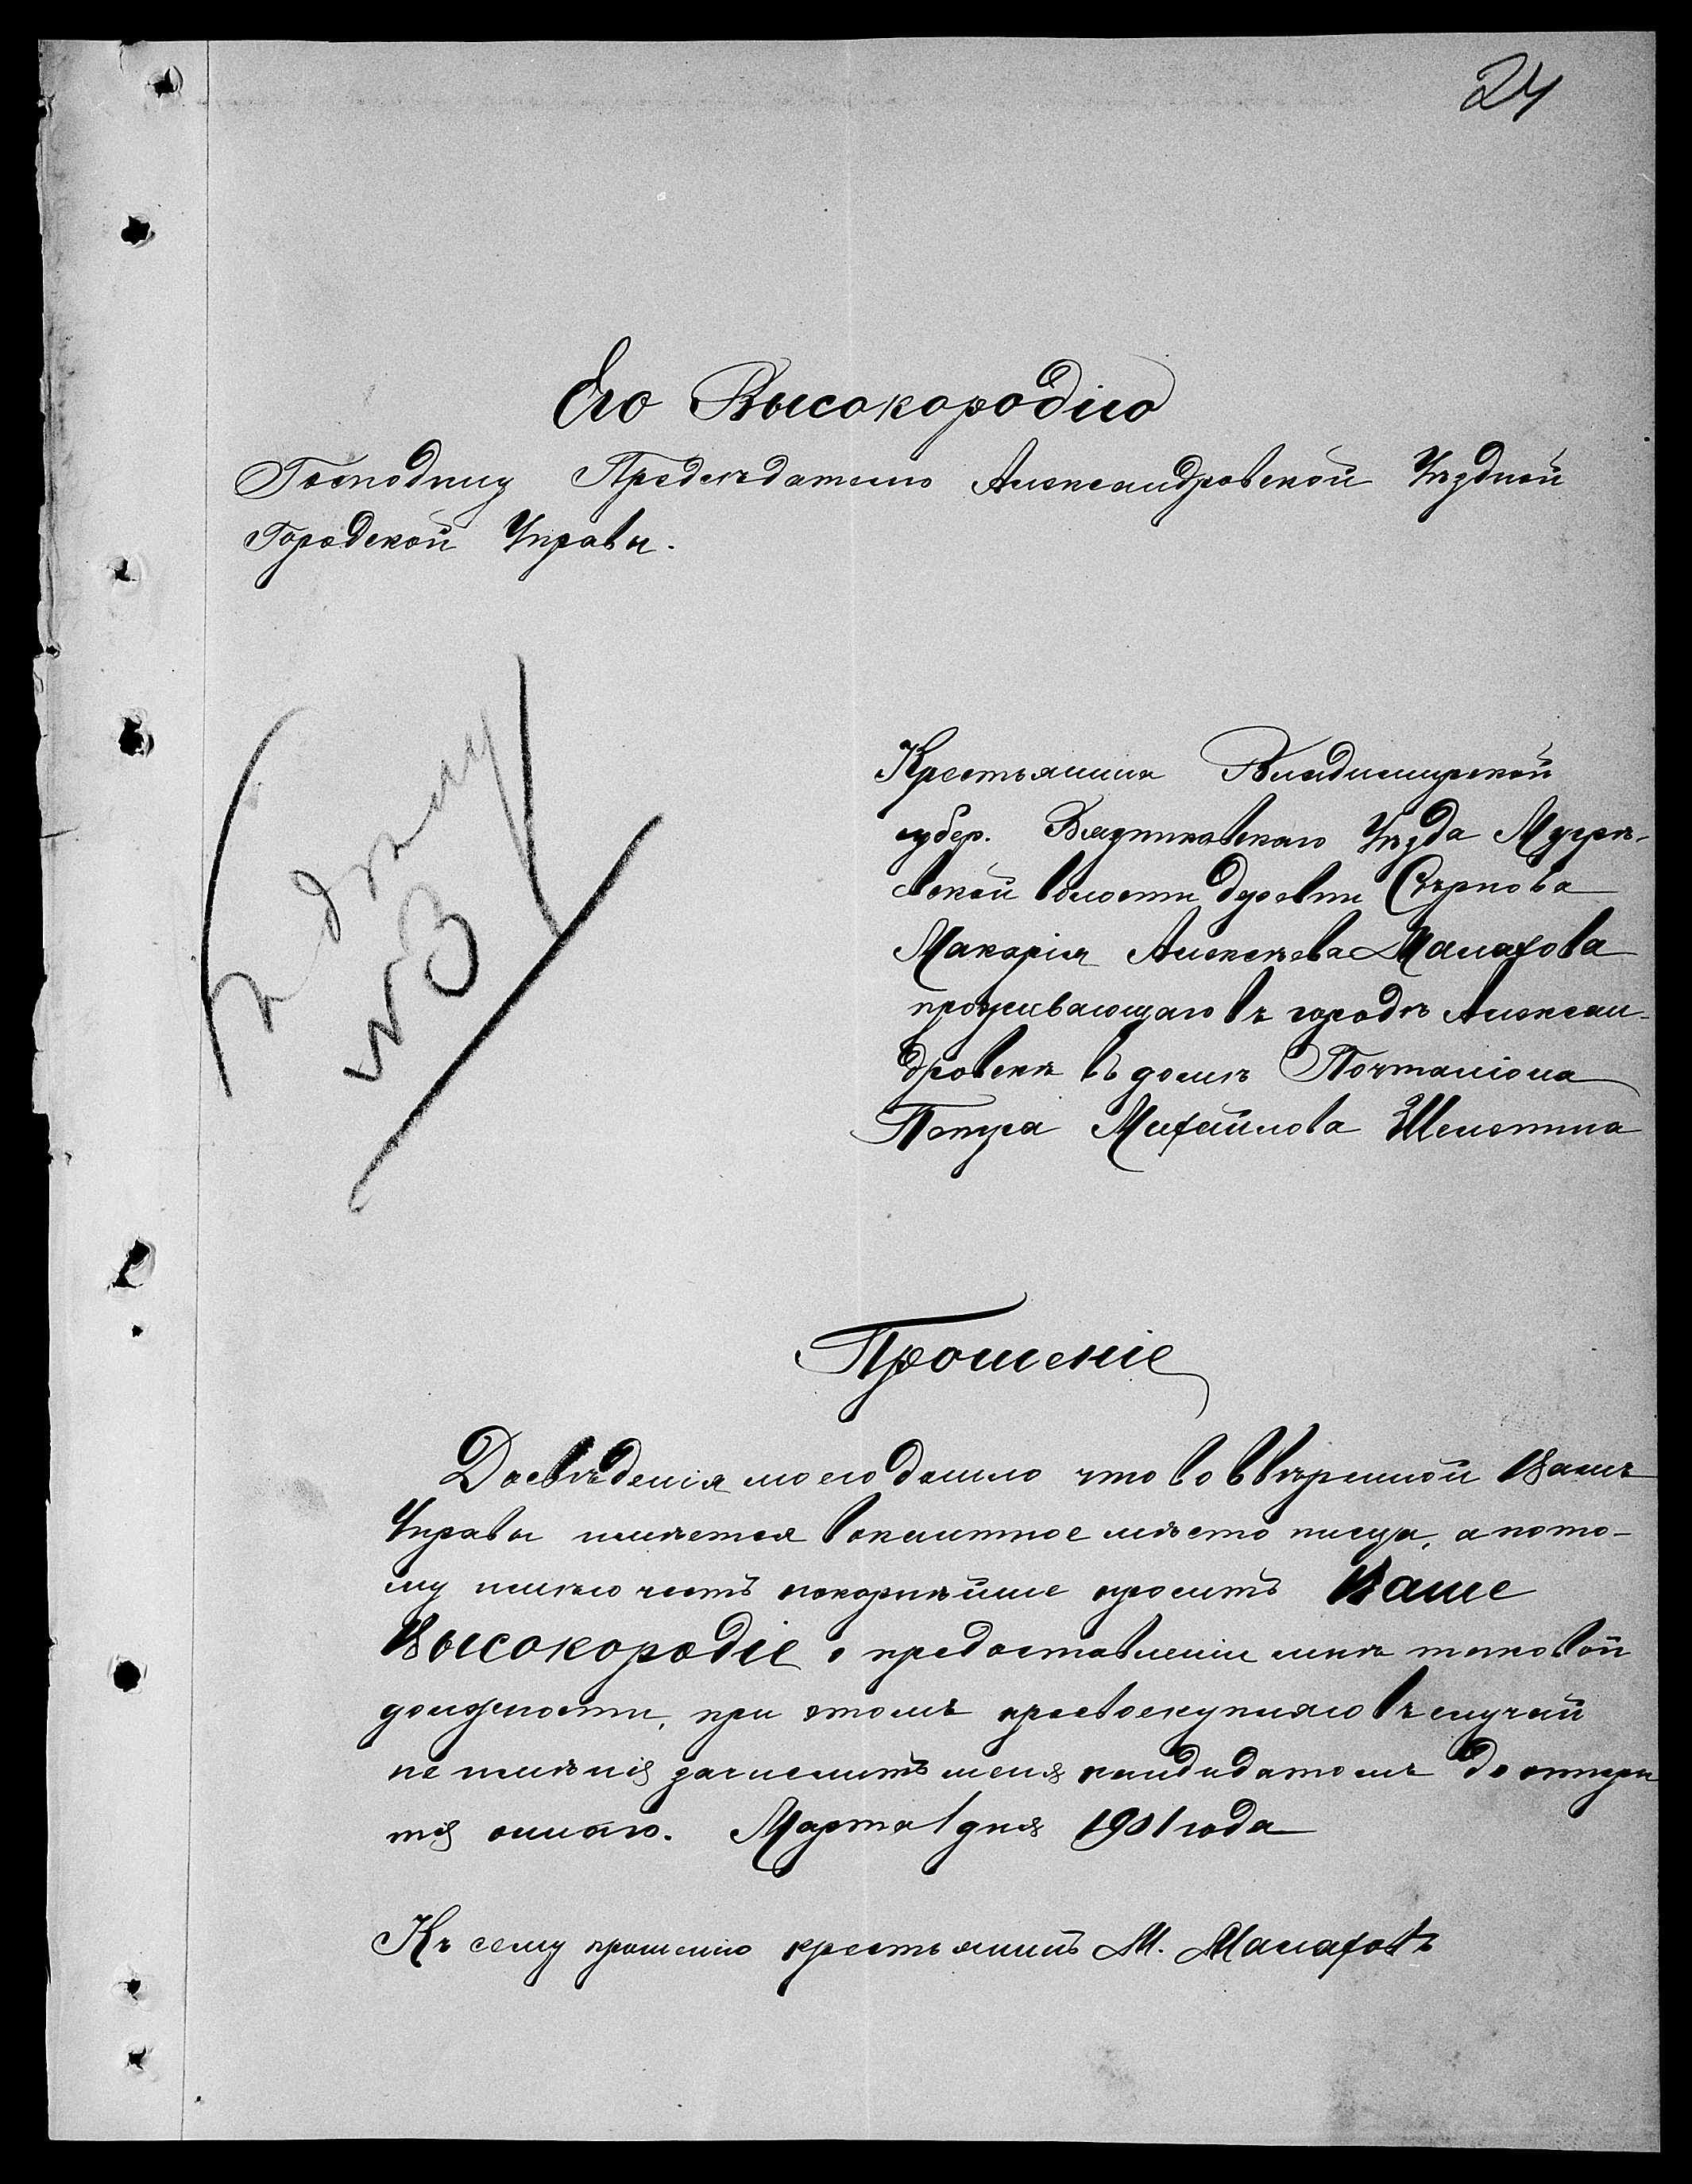 24
Его Высокородію
Господину Предсѣдателю Александровской Уѣздной
Городской Управы.
къ дѣлу
Крестьянина Владимирской
губер. Вязниковскаго Уѣзда Мугрѣ-
вской волости деревни
Макарія Алексѣева Малахова
проживающаго въ городѣ Алексан-
дровскѣ въ домѣ Почталіона
Петра Михайлова Шелетина
Прошеніе
До свѣденія моего дошло что во ввѣренной Вамъ
Управы имѣется вокантное мѣсто писца, а пото-
му имѣю честь покорнѣйше просить Ваше
Высокородіе о предоставленіи мнѣ таковой
должности, при этомъ присвокупляю въ случай
не имѣнія зачислить меня кандидатомъ до откры
тія оннаго. Марта 1 дня 1901 года
Къ сему прошенію крестьянинъ М. Малаховъ